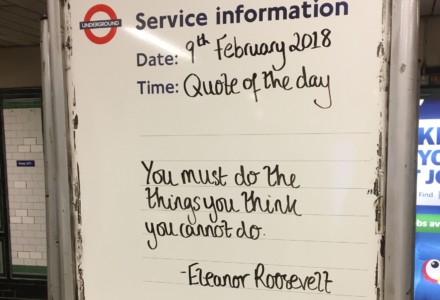 UNDERGROUND
Service information
Date: 9th February 2018
Time: Quote of the day
You must do the
things you think
you cannot do.
-Eleanor Roosevelt
Find